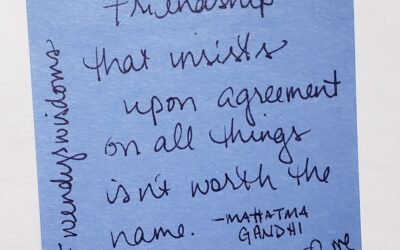 Friendship
that insists
upon agreement
on all things
isn't worth the
name. -MAHATMA
GANDHI
#wendyswisdoms